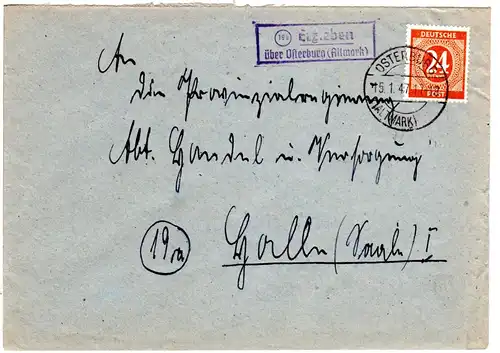 (19a) Erxleben
über Osterburg (Altmark)
DEUTSCHE
24
POST
OSTERBURG
15.1.47
(ALTMARK)
An
die Provinzialregierung
Abt. Handel u. Versorgung
(19a) Halle (Saale) I